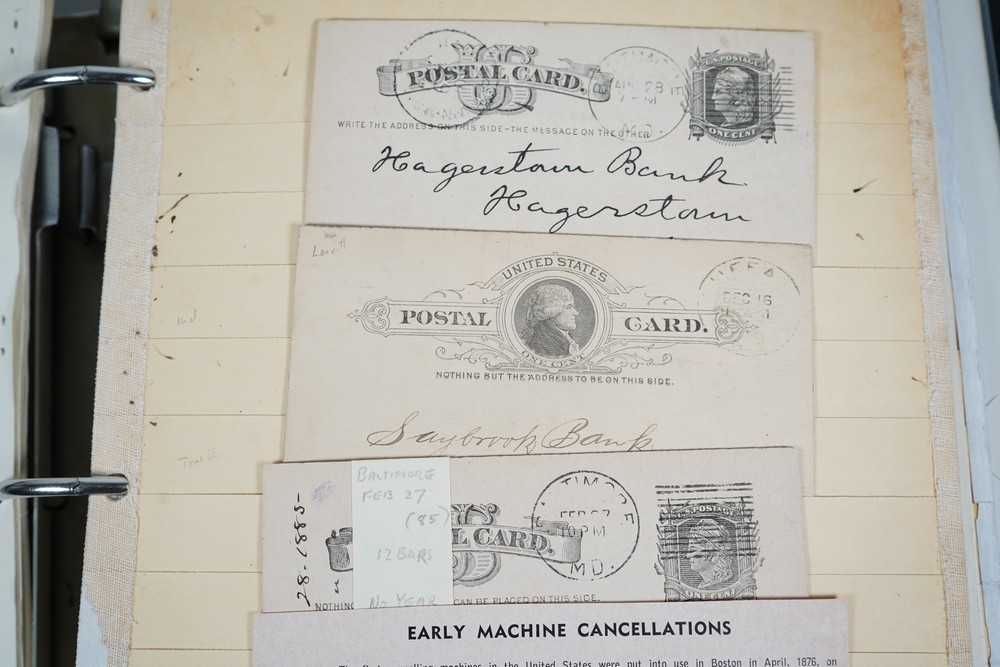 POSTAL CARD.
U.S. POSTAGE
ONE CENT
28
M.D.
WRITE THE ADDRESS ON THIS SIDE-THE MESSAGE ON THE OTHER
Hagerstown Bank
Hagerstown
UNITED STATES
POSTAL CARD.
ONE CENT
NOTHING BUT THE ADDRESS TO BE ON THIS SIDE.
DEC 16
Saybrook Bank
md
Type II
28-1885-
BALTIMORE
FEB 27
(85)
12 BARS
NO YEAR
L CARD.
TIMORE
FEB 27
10 PM
MD.
U.S. POSTAGE
ONE CENT
NOTHING
CAN BE PLACED ON THIS SIDE.
EARLY MACHINE CANCELLATIONS
machines in the United States were put into use in Boston in April, 1876, on